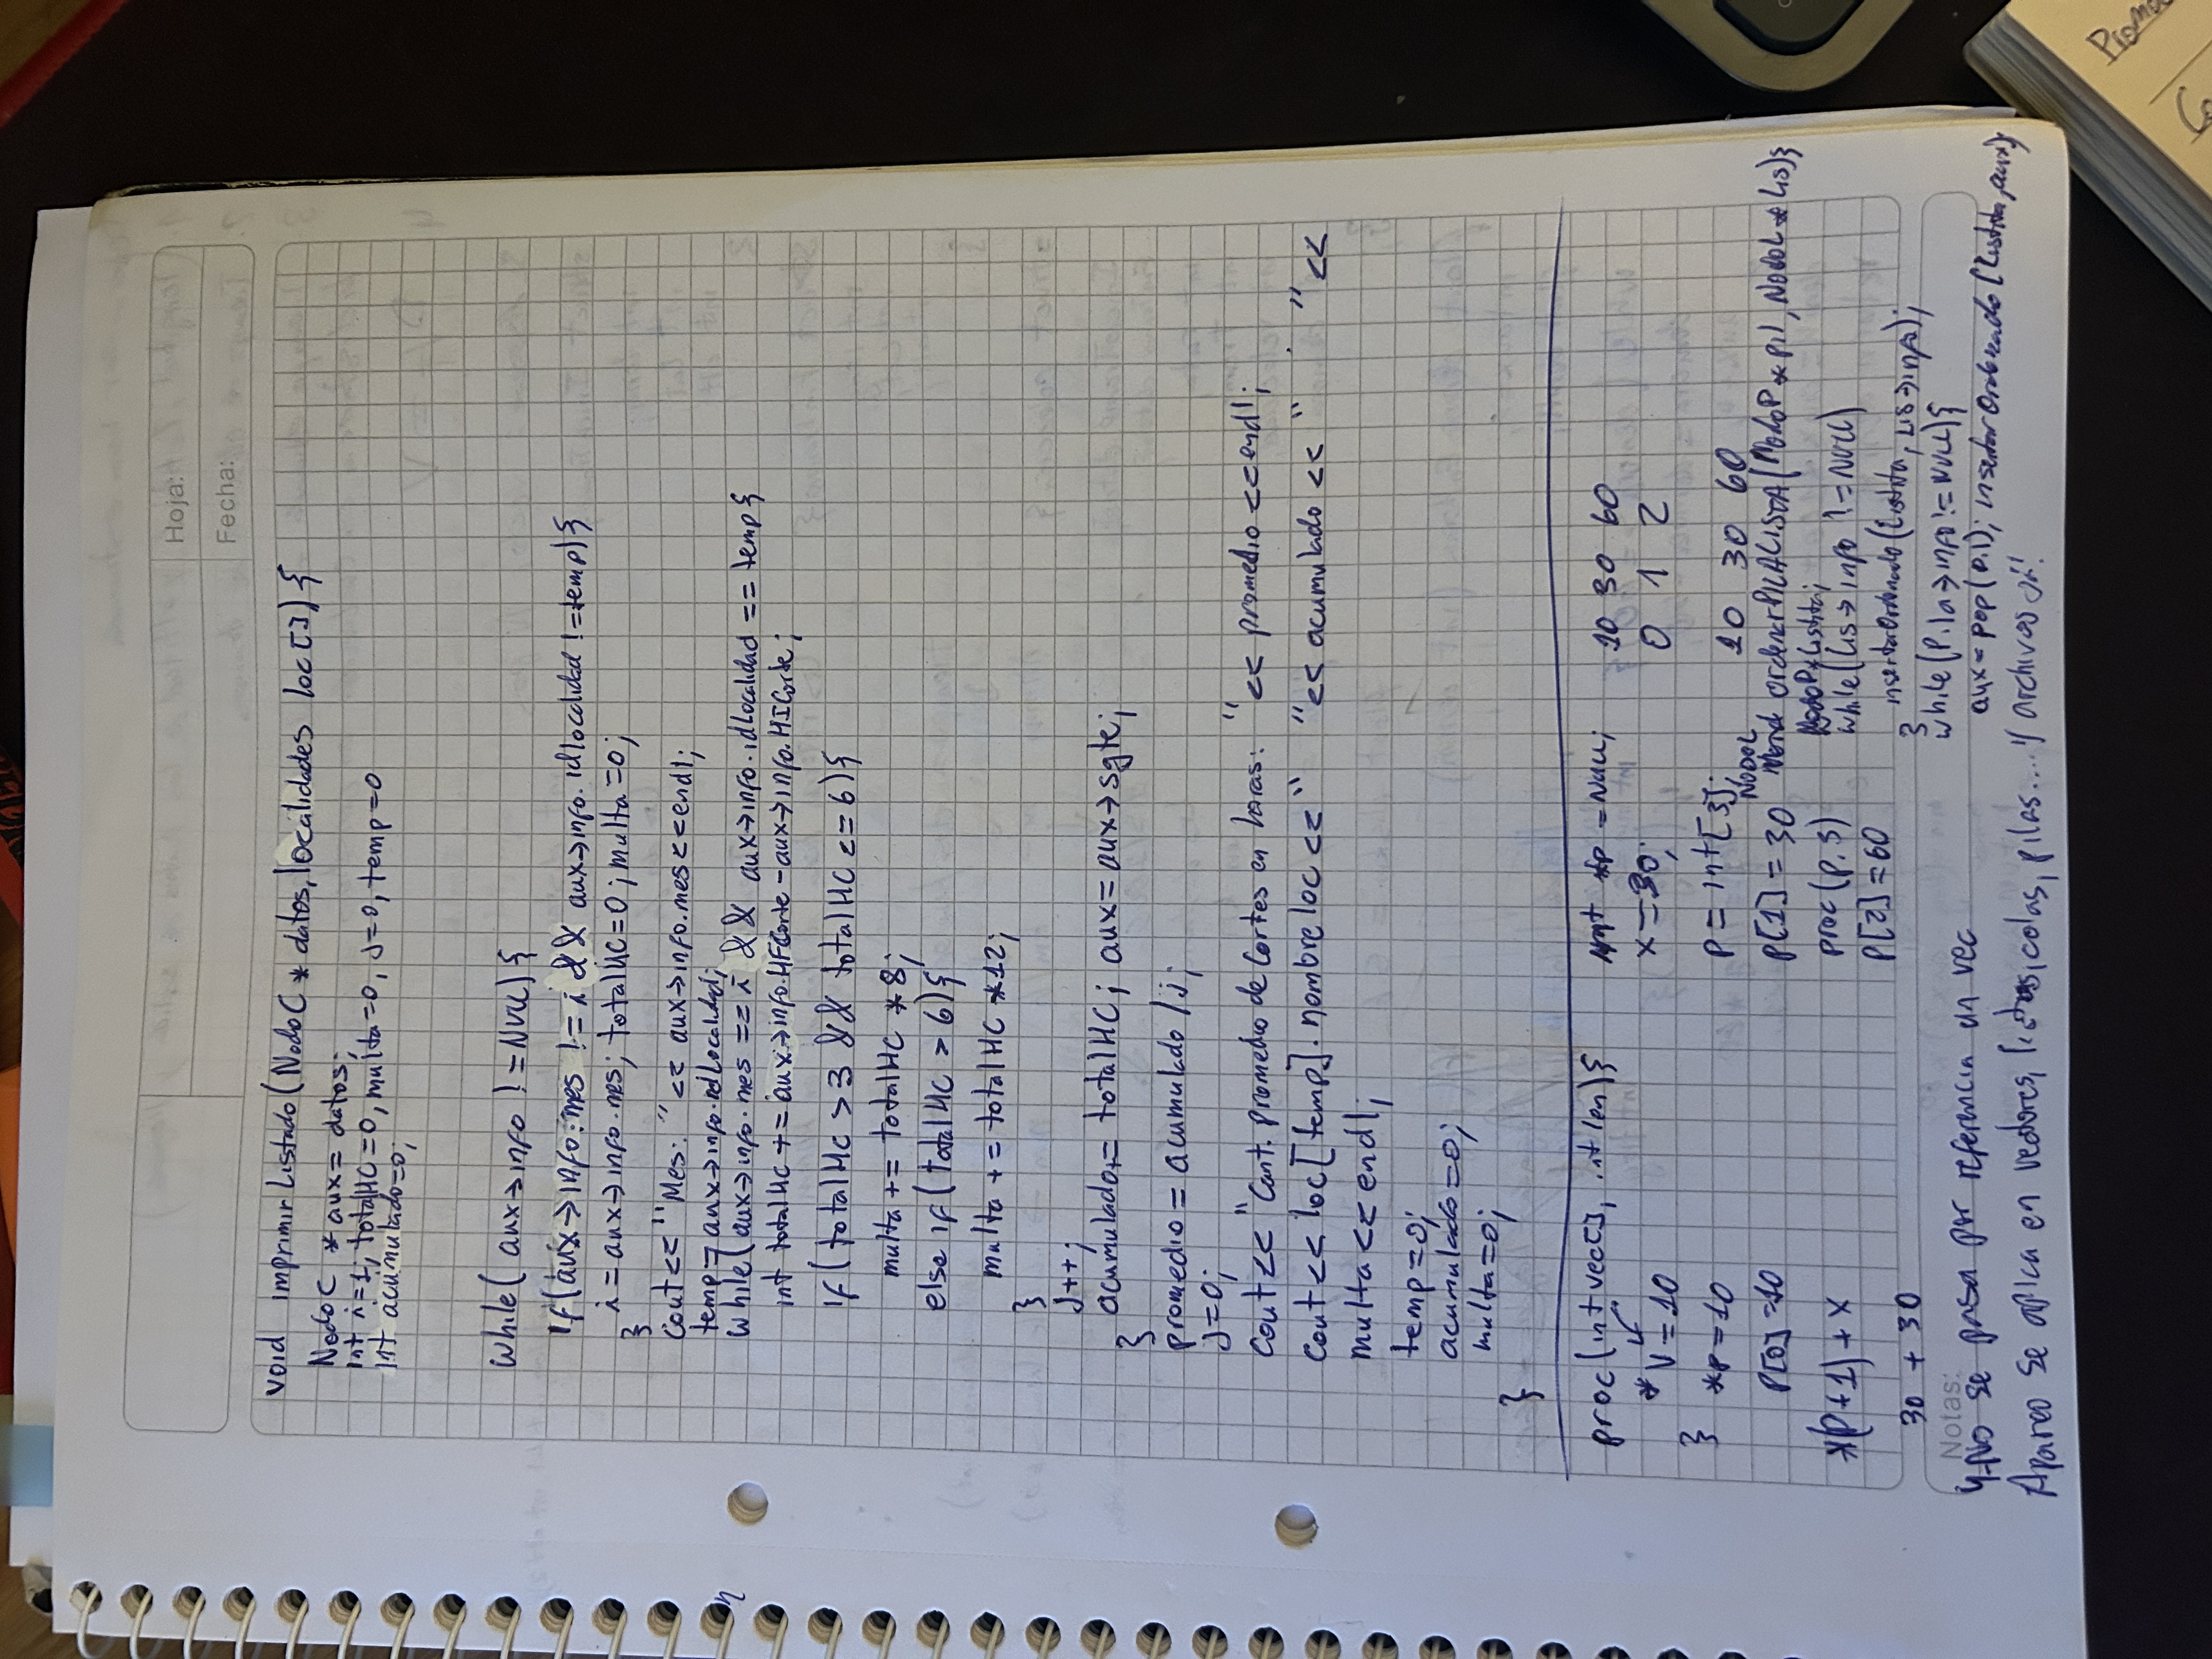 Hoja:
Fecha:
void imprimir Listado (NodoC * datos, localidades loc[]) {
NodoC * aux = datos;
int i=1; totalHC=0, multa=0, j=0, temp=0
int acumulado=0;
while( aux->info != NULL) {
if(aux->info.mes != i && aux->info.idlocalidad != temp) {
i = aux->info.mes; totalHC=0; multa=0;
}
cout<< "Mes: " << aux->info.mes<<endl;
temp = aux->info.idLocalidad;
while( aux->info.mes == i && aux->info.idLocalidad == temp {
int totalHC += aux->info.HFCorte - aux->info.HICorte;
if( totalHC > 3 && totalHC <= 6) {
multa += totalHC *8;
else if( totalHC > 6) {
multa += totalHC *12;
}
j++;
acumulado += totalHC; aux = aux->sgte;
}
promedio = acumulado /j;
j=0;
cout<< "Cant. promedio de cortes en horas: " << promedio <<endl;
cout<< loc[temp].nombreloc << " " << acumulado << " " <<
multa<< endl;
temp=0;
acumulado=0;
multa=0;
}
proc(int vec[], int len) {
* v = 10
}
*p = 10
P[0] = 10
*(p+1) + x
30 + 30
int *p = NULL;
x = 30;
p = int[3];
p[1] = 30
proc(p, 3)
P[2] = 60
10 30 60
0 1 2
10 30 60
NODOL
ordenarPILALISTA( NodoP * pil, NodoL * Lis) {
NodoP* Listita;
while( Lis->info != NULL)
insertarOrdenado( Listita, Lis->info);
}
while( Pila->info != NULL) {
aux = pop( pil); insertarOrdenado( Listita, aux);
Notas:
No se pasa por referencia un vec
Apareo se aplica en vectores, listas, colas, pilas.... y archivos
Promo